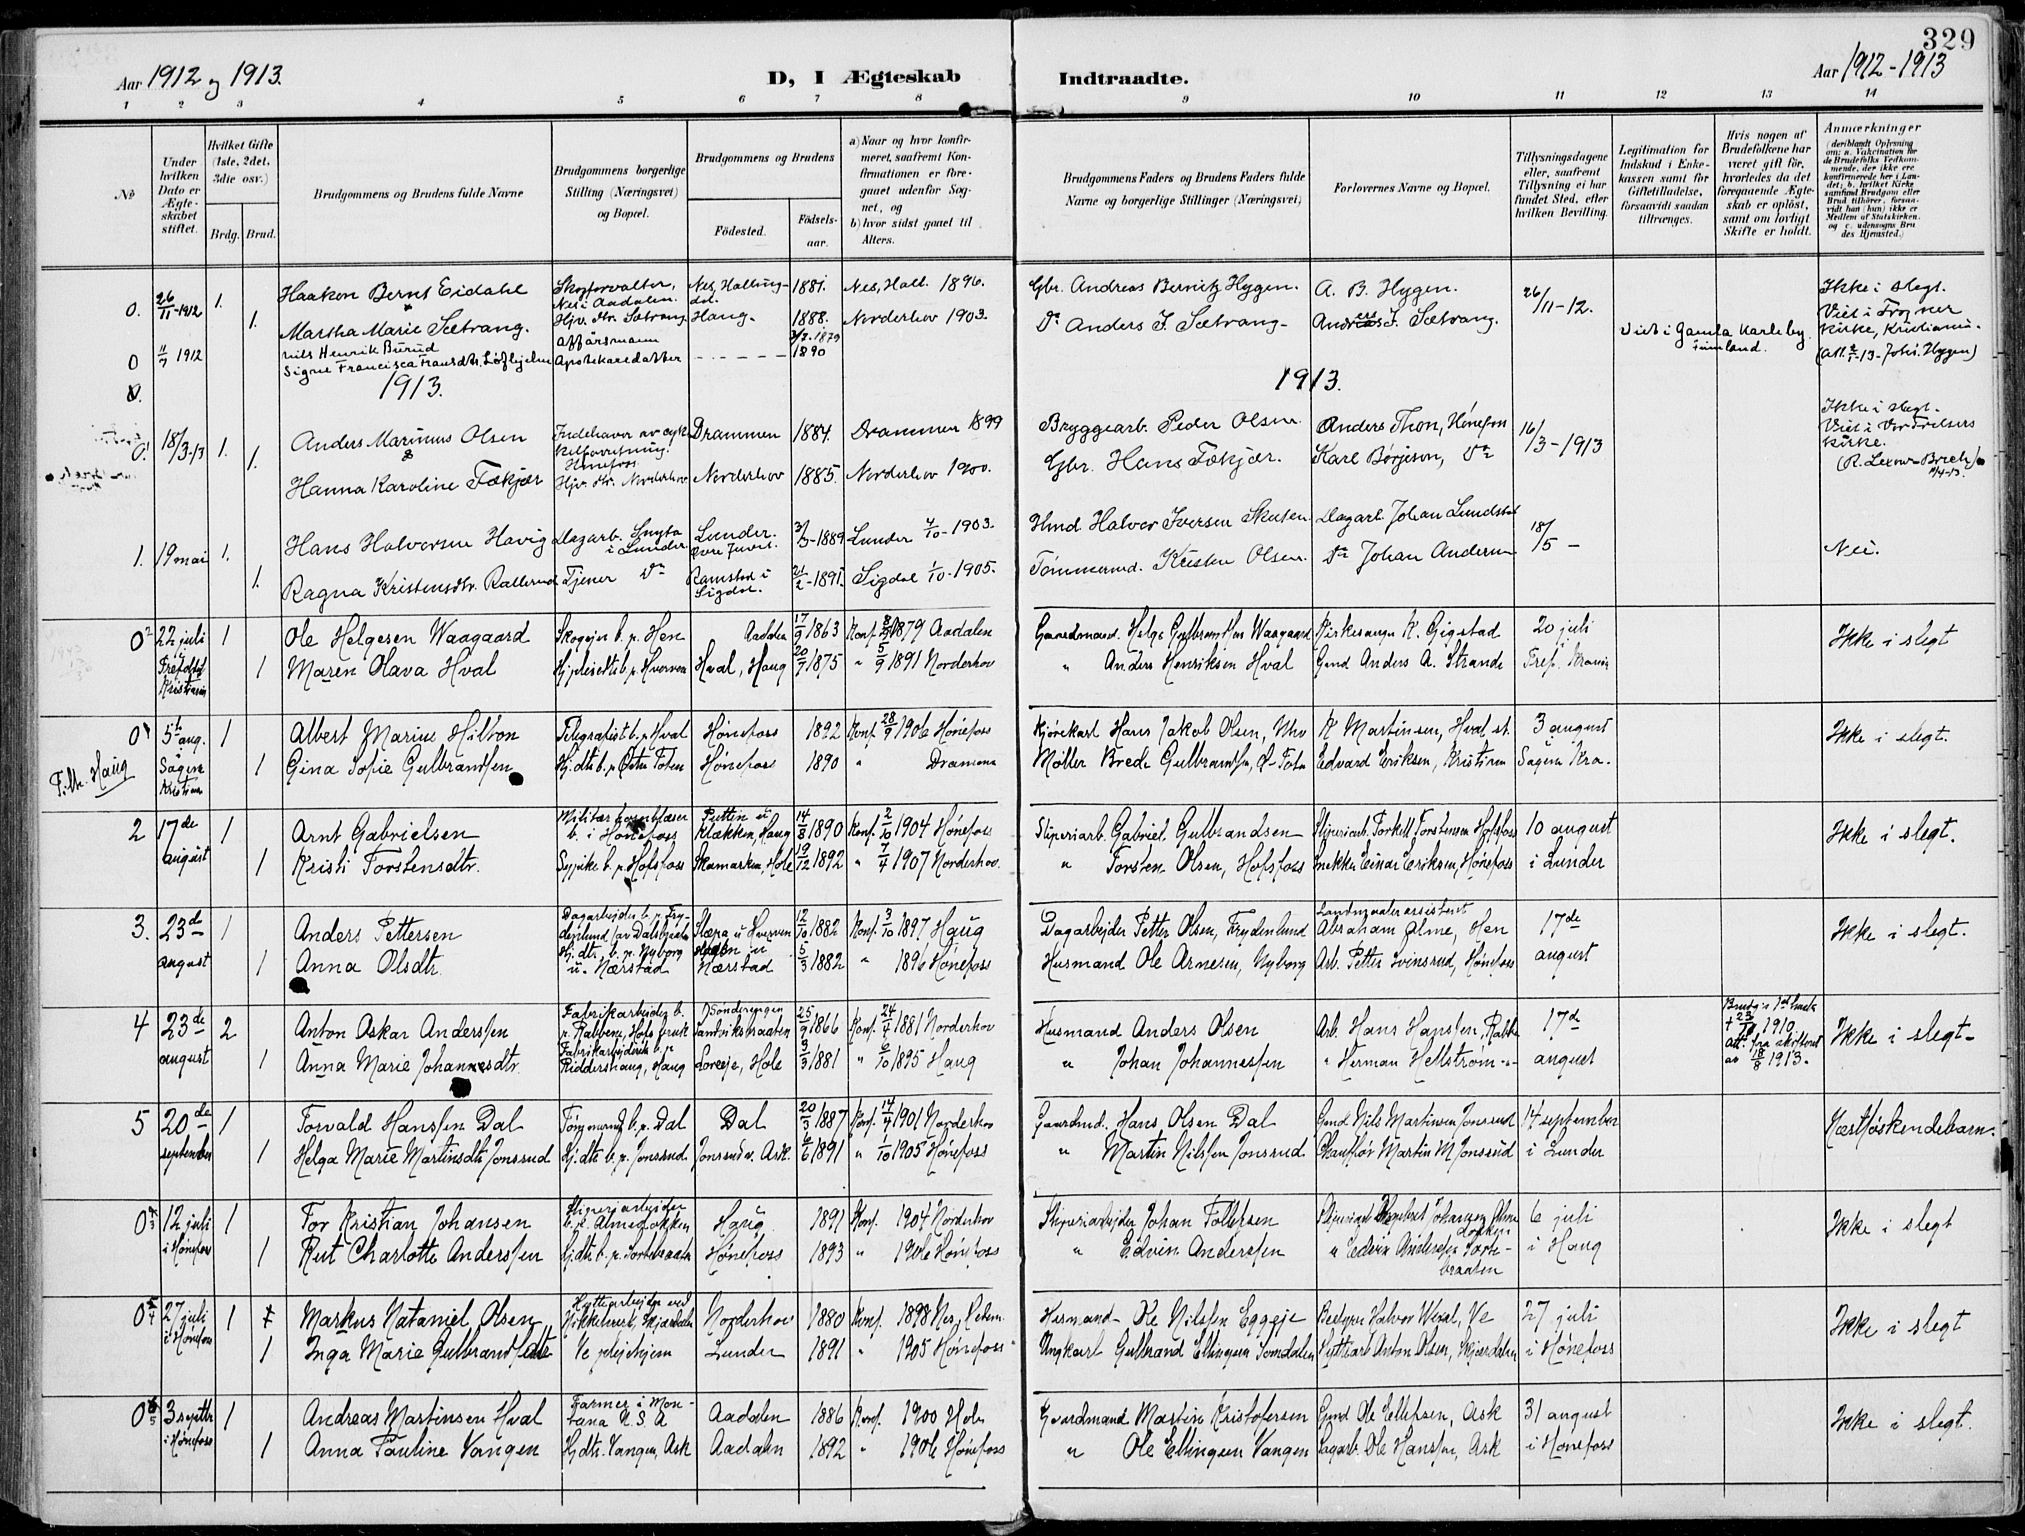 329
Aar 1912 og 1913.
D, I Ægteskab Indtraadte.
Aar 1912-1913
1 2 3 4 5 6 7 8 9 10 11 12 13 14
No
Under hvilken Dato er Ægteskabet stiftet.
Hvilket Gifte (1ste, 2det, 3die osv.)
Brdg. Brud.
Brudgommens og Brudens fulde Navne
Brudgommens borgerlige Stilling (Næringsvei) og Bopæl.
Brudgommens og Brudens
Fødested.
Fødselsaar.
a) Naar og hvor konfirmeret, saafremt Konfirmationen er foregaaet udenfor Sognet, og
b) hvor sidst gaaet til Alters.
Brudgommens Faders og Brudens Faders fulde Navne og borgerlige Stillinger (Næringsvei)
Forlovernes Navne og Bopæl.
Tillysningsdagene eller, saafremt Tillysning ei har fundet Sted, efter hvilken Bevilling.
Legitimation for Indskud i Enkekassen samt for Giftetilladelse, forsaavidt saadan tiltrænges.
Hvis nogen af Brudefolkene har været gift før, hvorledes da det foregaaende Ægteskab er opløst, samt om lovligt Skifte er holdt.
Anmærkninger
0. 26/11-1912 1. Haakon Bernt Eidahl Skogforvalter, Nes i Aadalen. Nes, Hallingdal. 1881. Nes, Hall. 1896. Gbr. Andreas Berntz Hygen. A. B. Hygen. 26/11-12. Ikke i slegt.
1. Martha Marie Sætrang. Hjv. Str. Sætrang Haug. 1888. Norderhov 1903. Do Anders J. Sætrang Anders J. Sætrang. Viet i Frogner kirke, Kristiania. (Att. 2/1-13 Johs. Hygen)
0 11/7 1912 Nils Henrik Burud Affärsmann 1879 Viet i Gamla Karleby Finnland.
Signe Francisca Fransdtr. Løfhjelm Apotekaredatter 1890
1913. 1913.
0. 18/3-13 1. Anders Marinius Olsen Indehaver av cykkelforretning. Hønefoss Drammen 1884. Drammen 1899 Bryggearb. Peder Olsen Anders Thon, Hønefos 16/3-1913 Ikke i slegt.
1. Hanna Karoline Fækjær Hjv. Str. Norderhov Norderhov 1885. Norderhov 1900. Gbr. Hans Fækjær. Karl Børjeson, Do Viet i Vor Frelsers kirke.
1. 19 mai 1. Hans Halvorsen Havig Dagarb. i Lunder Lunder. 1889 Lunder 4/10-1903. Hmd Halvor Iversen Skuten Dagarb. Johan Lundstad 18/5 - Nei.
1. Ragna Kristensdtr. Rallerud Tjener Do Ramstad i Sigdal. 21/2-1891. Sigdal 1/10-1905. Tømmermd. Kristen Olsen. Do Johan Andersen
0 22 juli 1 Ole Helgesen Waagaard Skogejer b. p. Hen Aadalen 17/9 1863 Konf. 1879 Aadalen Gaardmand Helge Gulbrandsen Waagaard Kirkesanger K. Gigstad 20 juli Ikke i slegt
Kristiania 1 Maren Olava Hval b. p. Hverven Hval, Haug 20/7 1875 " 5/9 1891 Norderhov " Anders Henriksen Hval Gmd Anders A. Strande
0 5 aug. 1 Albert Marius Hilton Telegrafist b. p. Hval Hønefoss 1892 Konf. 28/9 1906 Hønefoss Kjørekarl Hans Jakob Olsen, K Martinsen, Hval st. 3 august Ikke i slegt.
Sagene Kristiania 1 Gina Sofie Gulbrandsen Hj.dtr b. p. Østre Toten Hønefoss 1890 " Drammen Møller Brede Gulbrandsen, Ø-Toten Edvard Eriksen, Kristiania Sagene Kra.
F. th. Haug
2 17de august 1 Arnt Gabrielsen Militær hornblæser b. i Hønefoss Pultin u Klækken, Haug 14/8 1890 Konf. 2/10 1904 Hønefoss Sliperiarb. Gabriel Gulbrandsen Sliperiarb. Torkell Torstensen Hofsfoss 10 august Ikke i slegt.
1 Kristi Torstensdtr. Sypike b. p. Hofsfoss Skamarken, Hole 19/12 1892 " 7/4 1907 Norderhov. " Torsten Olsen, Hofsfoss Snekker Einar Eriksen, Hønefoss i Lunder
3. 23de august 1 Anders Pettersen Dagarbejder b. p. Frydenlund av Dalsbygda Stæra u Hverven 12/10 1882 Konf. 3/10 1897 Haug Dagarbejder Petter Olsen, Frydenlund Landmaalerassistent Abraham Alme, Hen 17de august Ikke i slegt.
1 Anna Olsdtr. Hj.dtr. b. p. Nyborg u. Nærstad Nærstad 5/3 1882 " 1896 Hønefoss Husmand Ole Arnesen, Nyborg Arb. Petter Svinsrud, Hønefoss
4 23de august 2 Anton Oskar Anderssen Fabrikarbejder b. p. Rabben, Hofs bruk Søndrengen Sandviksbraaten 25/9 1866 Konf. 24/4 1881 Norderhov Husmand Anders Olsen Arb. Hans Hanssen, Rabbe 17de august Brudg.s 1st hust. † 23/10 1910. Att. fra skifteret av 18/8 1913. Ikke i slegt
1 Anna Marie Johannesdtr. Fabrikarbejderske b. p. Riddershaug, Haug Loreeje, Hole 3/3 1881 " 6/10 1895 Haug " Johan Johannessen " Herman Hellstrøm -"-
5 20de september 1 Torvald Hanssen Dal Tømmermd b. p. Dal Dal 20/3 1887 Konf. 14/4 1901 Norderhov Gaardmd. Hans Olsen Dal Gmd Nils Martinsen Jonsrud 14 september Næstsøskendebarn.
1 Helga Marie Martinsdtr Jonsrud Hj.dtr b. p. Jonsrud. Jonsrud v. Ask. 6/6 1891 " 1/10 1905 Hønefoss " Martin Nilssen Jonsrud Chauffør Martin M Jonsrud i Lunder
0 12 juli i Hønefos 1 Tor Kristian Johansen Sliperiarbejder b. p. Almeløkken Haug 1891 Konf. 1904 Norderhov Sliperiarbejder Johan Tollefsen 6 juli Ikke i slegt
1 Rut Charlotte Anderssen Hj.dtr b. p. Sortebraaten Hønefoss 1893 " 1906 Hønefoss " Edvin Anderssen " Edvin Anderssen Sortebraaten i Haug
0 27 juli i Hønefos 1 Markus Nataniel Olsen Hyttearbejder ved Nikkelverk, Skjærdalen Norderhov 1880 Konf. 1898 Nes, Hedem. Husmand Ole Nilssen Eggeje Bestyrer Halvor Wexal, Ve 27 juli Ikke i slegt
1 Inga Marie Gulbrandsdtr Ve plejehjem Lunder 1891 " 1905 Hønefoss Ungkarl Gulbrand Ellingsen Somdalen Hyttearb Anton Olsen, Skjærdalen i Hønefoss
0 3 septbr i Hønefoss 1 Andreas Martinsen Hval Farmer i Montana U. S. A Aadalen 1886 Konf. 1900 Hole Gaardmand Martin Kristofersen Gmd Ole Ellefsen, Ask 31 august Ikke i slegt.
1 Anna Pauline Vangen Hj.dtr. Vangen, Ask Aadalen 1892 " 1906 Hønefoss " Ole Ellingsen Vangen Sagarb. Ole Hanssen, Ask i Hønefoss